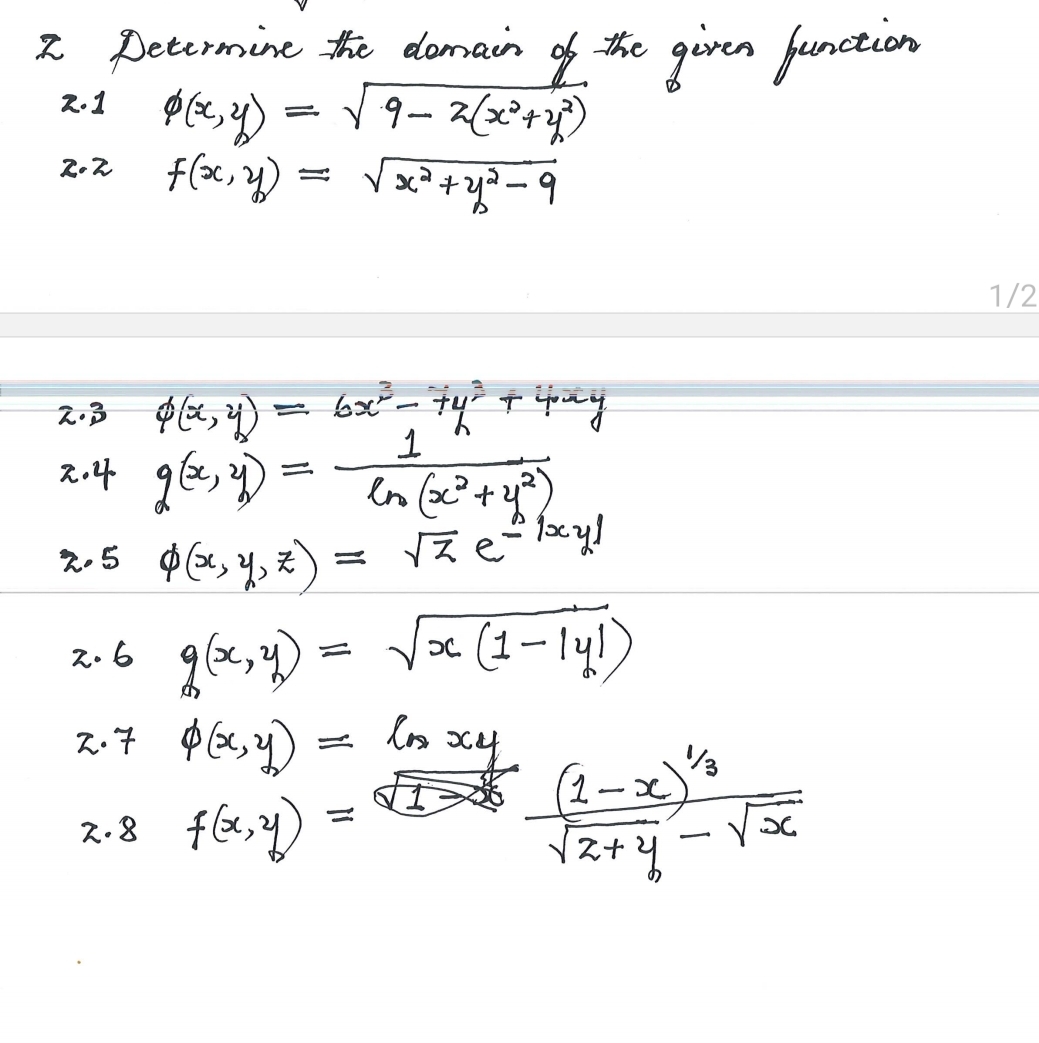 2 Determine the domain of the given function
2.1 ϕ(x,y) = √(9 – 2(x²+y²))
2.2 f(x,y) = √(x²+y²–9)
1/2
2.3 ϕ(x,y) = 6x² – 7y² + 4xy
2.4 g(x,y) = 1/(ln(x²+y²))
2.5 ϕ(x,y,z) = √z e^(–|xy|)
2.6 g(x,y) = √(x(1–|y|))
2.7 ϕ(x,y) = ln xy
2.8 f(x,y) = (1–x)^(1/3)/(√(2+y) – √x)